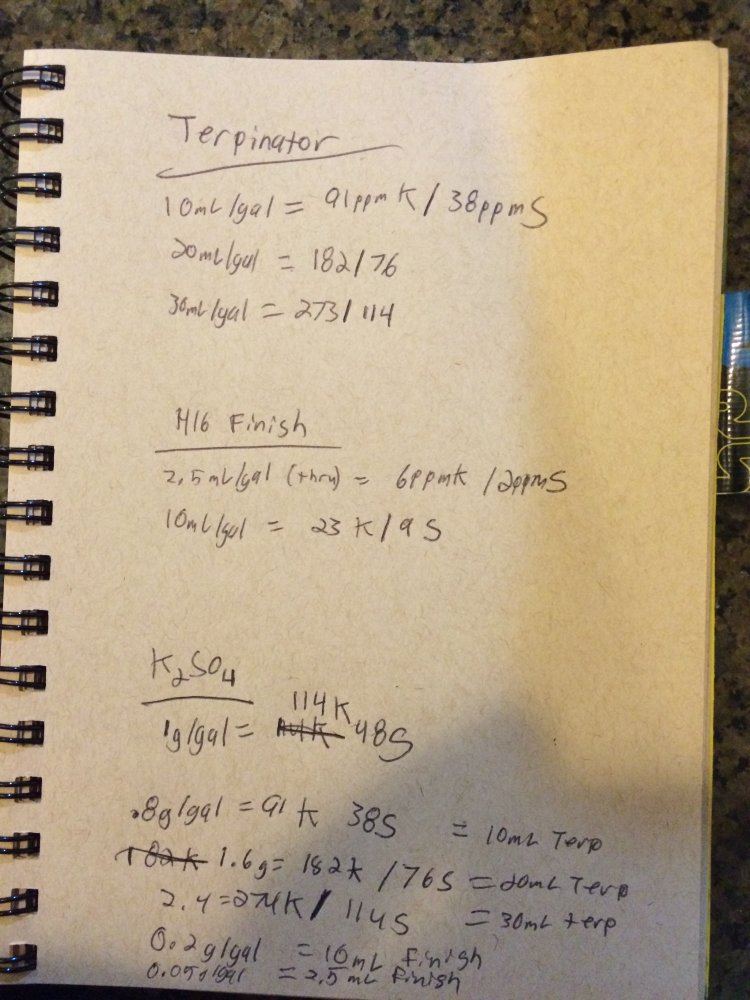 Terpinator
10mL/gal = 91ppm K / 38ppm S
20mL/gal = 182/76
30mL/gal = 273/114
H16 Finish
2.5mL/gal (thru) = 6ppmK /2ppmS
10mL/gal = 23 K/9 S
K2SO4
114K
1g/gal = 48S
.8g/gal = 91 K 38S = 10mL Terp
182K 1.6g= 182K /76S = 20mL Terp
2.4=274K/ 114S = 30mL terp
0.2g/gal = 10mL Finish
0.05g/gal = 2.5mL Finish